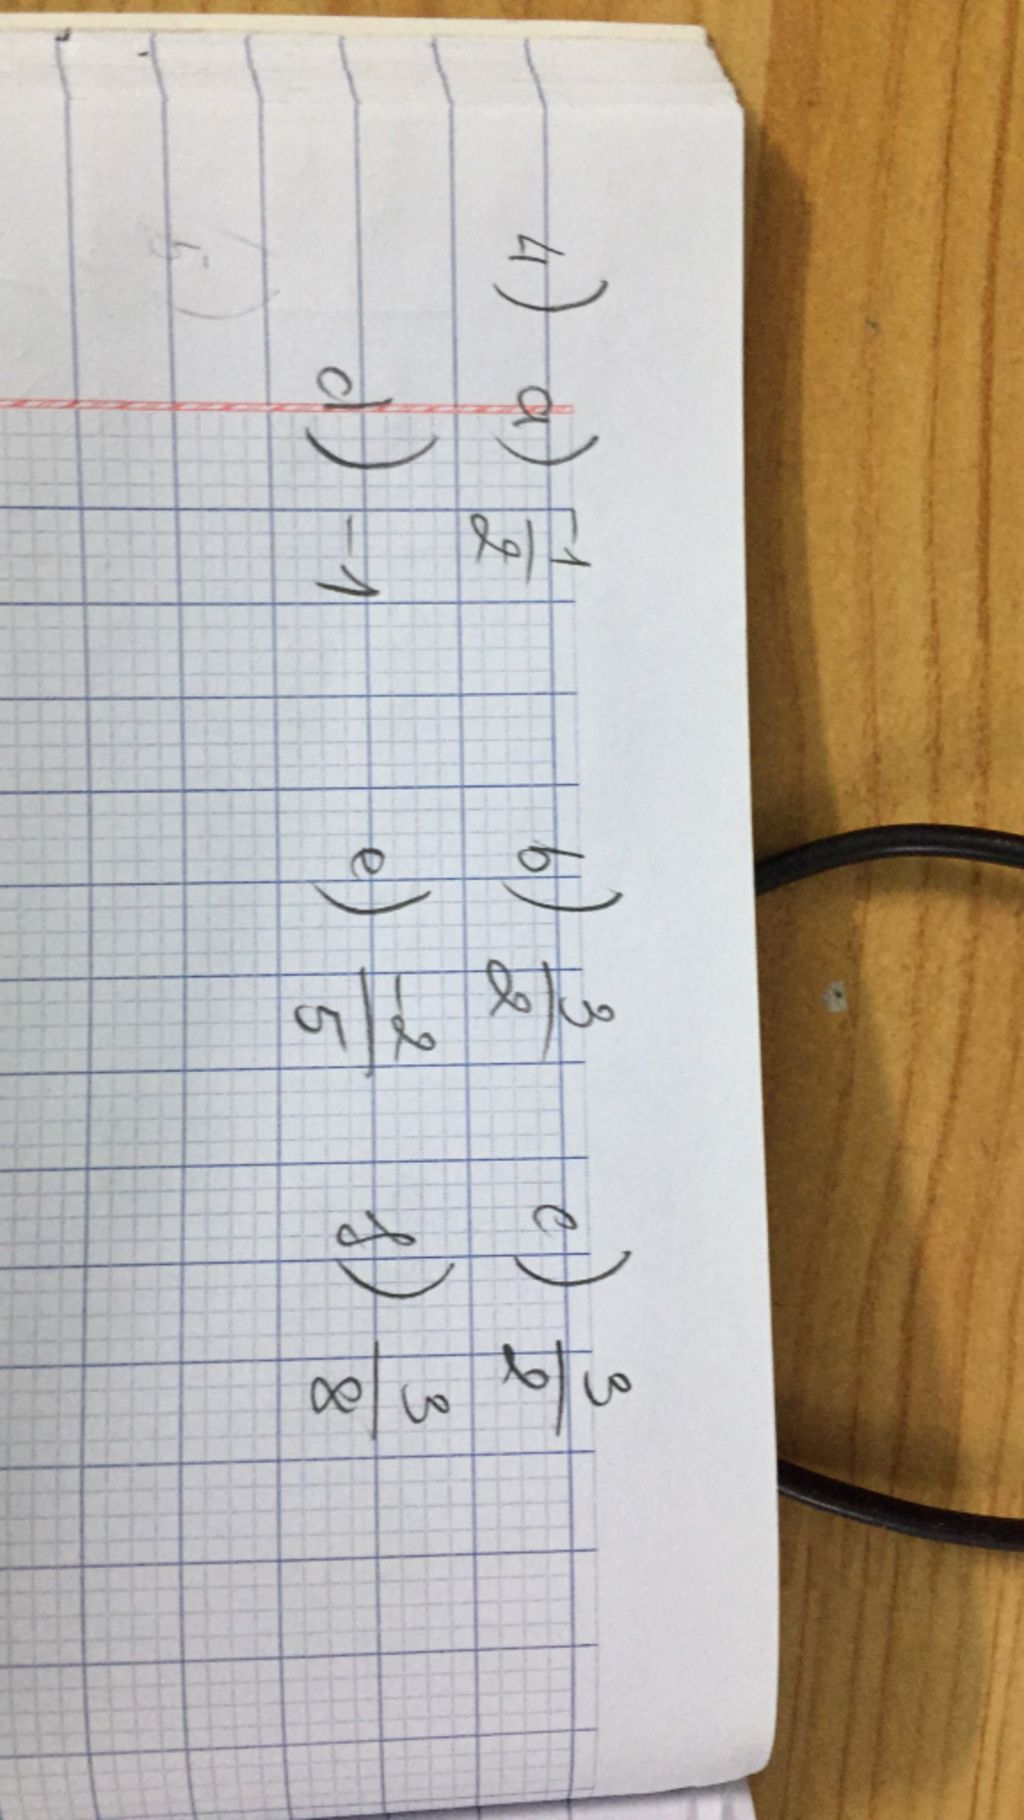 4) a) -1/2 b) 3/2 c) 3/2
d) -1 e) -2/5 f) 3/8
5)